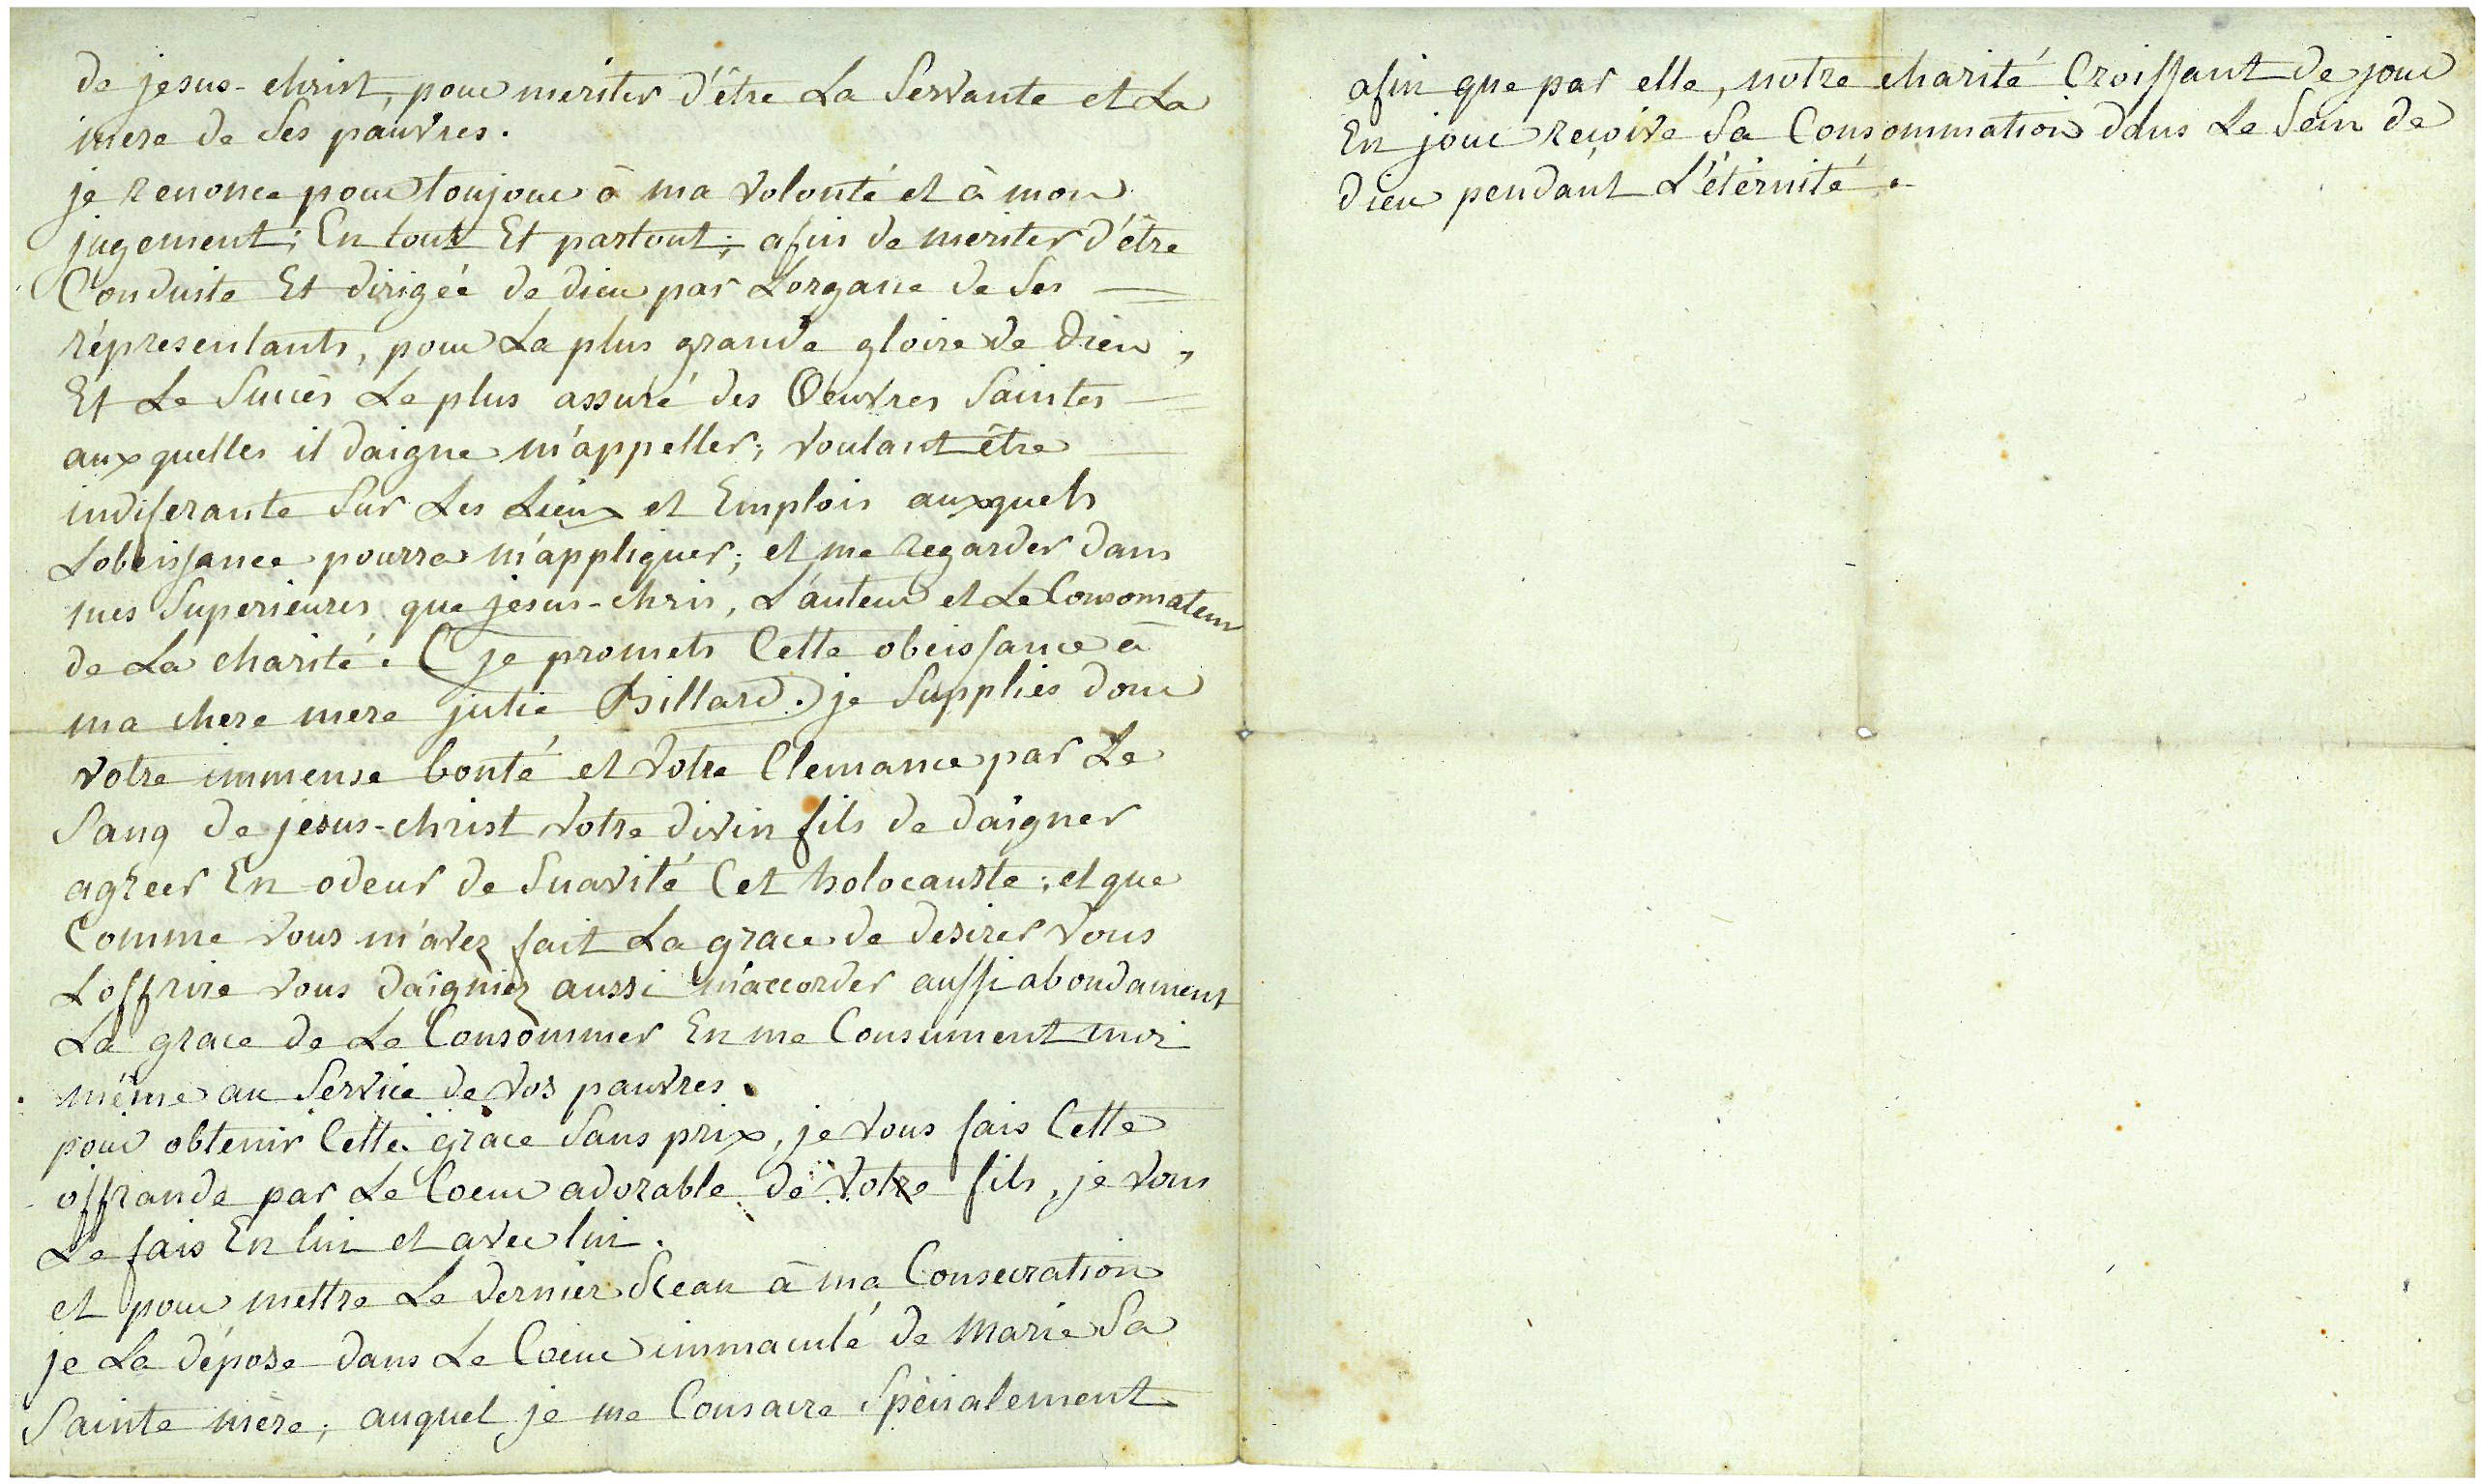 de jesus-christ, pour meriter d'être La Servante et La
mere de Ses pauvres.
je renonce pour toujour à ma volonté et à mon
jugement; En tout Et partout; afin de meriter d'être
Conduite Et dirigéé de dieu par L'organe de Ses
répresentants, pour La plus grande gloire de Dieu,
Et Le Succès Le plus assuré des Oeuvres Saintes
auxquelles il daigne m'appeller; voulant être
indiferante Sur Les Lieux et Emplois auxquels
Lobeissance pourra m'appliquer; et me regarder dans
mes Superieures que jesus-chris, L'auteur et Le Consomateur
de La charité. (je promets Cette obeissance à
ma chere mere julie Billard.) je Supplies donc
votre immense bonté et votre Clemance par Le
Sang de jesus-christ votre divin fils de daigner
agreer En odeur de Suavité Cet holocauste; et que
Comme vous m'avez fait La grace de desirer vous
Loffrire vous daigniez aussi m'accorder aussi abondament
La grace de Le Consommer En me Consument moi
même au Service de vos pauvres.
pour obtenir Cette grace Sans prix, je vous fais Cette
offrande par Le Coeur adorable de votre fils, je vous
Le fais En lui et avec lui.
et pour mettre Le dernier Sceau à ma Consecration
je La dépose dans Le Coeur immaculé de Marie Sa
Sainte mère; auquel je me Consacre Spécialement
afin que par elle, notre charité Croissant de jour
En jour reçoive Sa Consommation dans Le Sein de
dieu pendant L'éternité.